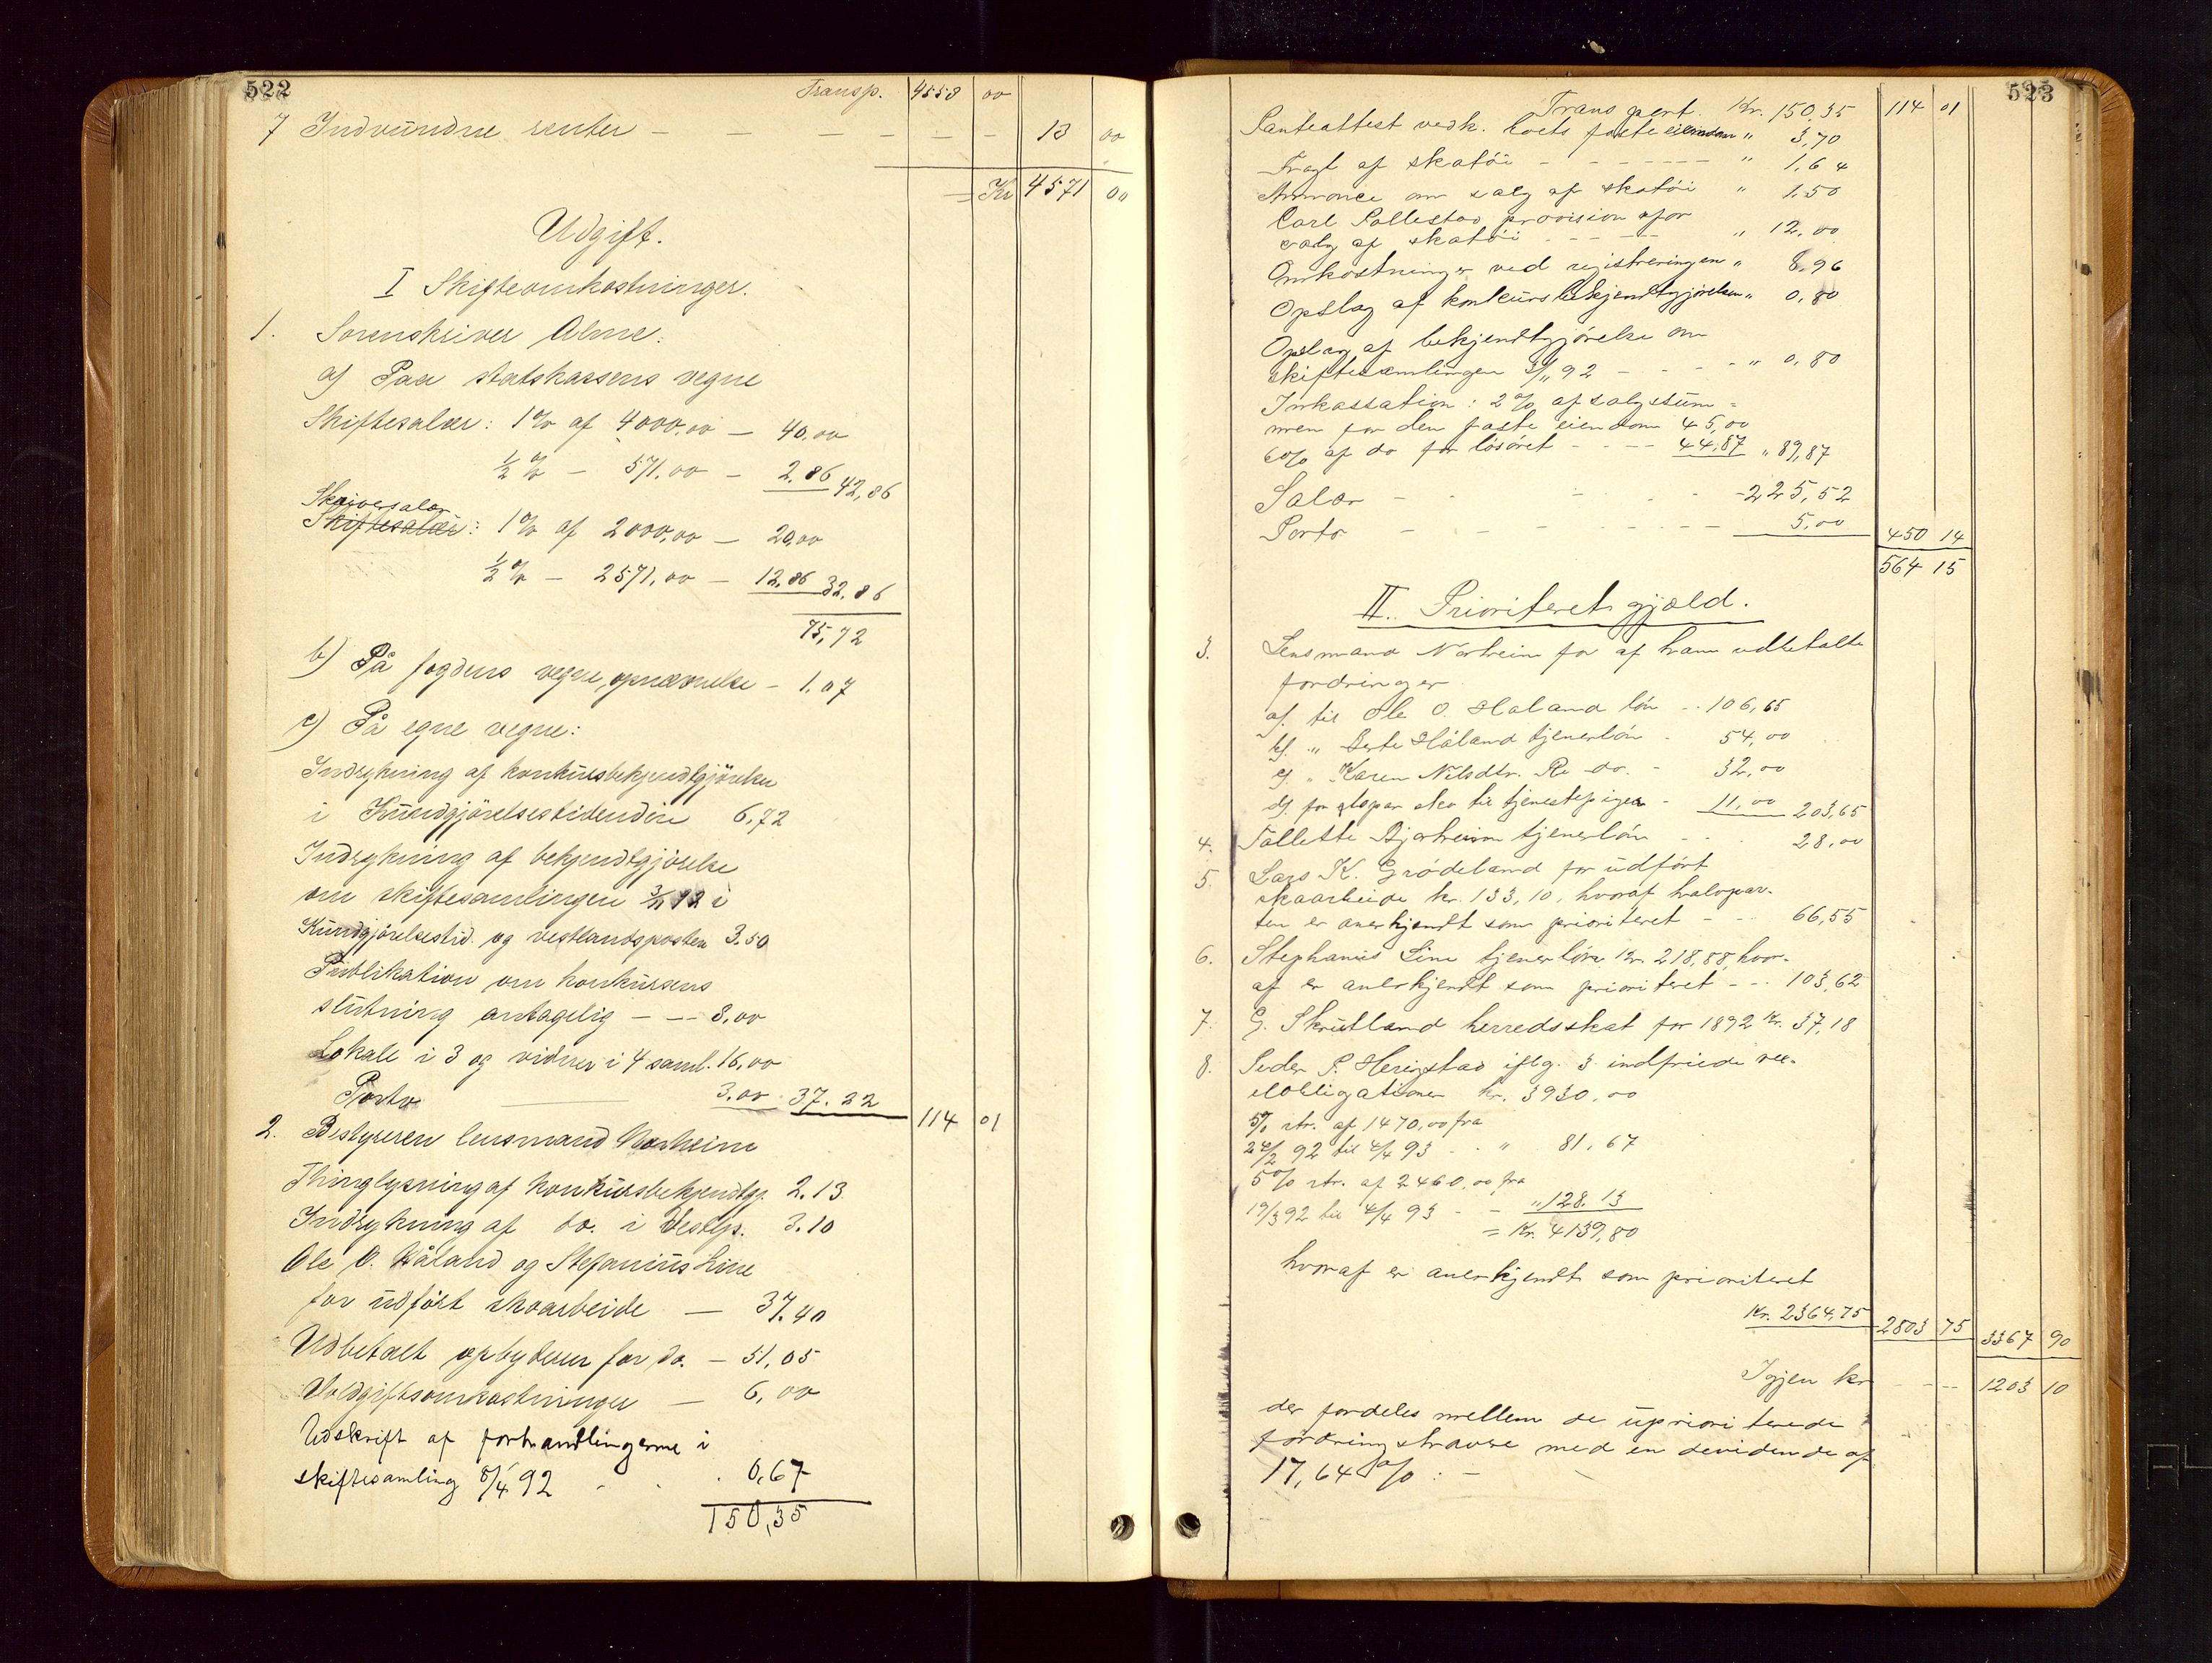 522
Transp. 4558 00
7 Indvundne renter — — — — — — 13 00
= Kr 4571 00
Udgift.
I Skifteomkostninger.
1. Sorenskriver Alme.
a) Paa statskassens vegne
Skiftesalær: 1% af 4000,00 — 40,00
½ % — 571.00 — 2.86 42,86
Skriversalær
Skiftesalær: 1% af 2000,00 — 20,00
½ % — 2571,00 — 12.86 32.86
75,72
b) På fogdens vegne, opnævnelse — 1.07
c) På egne vegne:
Indrykning af konkursbekjendtgjörelse
i Kundgjörelsestidenden 6,72
Indrykning af bekjendtgjörelse
om skiftesamlingen 3/11 92 i
Kundgjörelsestid. og vestlandsposten 3.50
Publikation om konkursens
slutning antagelig — — 8,00
Lokale i 3 og vidner i 4 saml. 16,00
Porto 3.00 37.22 114 01
2. Bestyreren lensmand Norheim
Thinglysning af konkursbekjendtgj. 2.13
Indrykning af do. i Vestlps. 3.10
Ole O. Håland og Stefanius Line
for udfört skoarbeide — 37.40
Udbetalt opbyderen for do. — 51,05
Voldgiftsomkostninger — 6,00
Udskrift af forhandlingerne i
skiftesamling 8/4 92 - . . 0,67
150,35
523
Transport. Kr. 150,35 114 01
Panteattest vedk. boets faste eiendom " 3,70
Fragt af skotöi - - - - - - " 1,64
Annonce om salg af skotöi " 1,50
Carl Pollestad, provision for
salg af skotöi - - - - - " 12,00
Omkostninger ved registreringen " 8,96
Opslag af konkursbekjendtgjörelsen " 0,80
Opslag af bekjendtgjörelse om
skiftesamlingen 3/11 92 - - - - " 0,80
Inkassation: 2% af salgssum=
men for den faste eiendom 45,00
6% af do for lösöret - - - - 44.87 " 89,87
Salær - - - - - 225,52
Porto - - - - - - 5,00 450 14
564 15
II. Prioriteret gjæld.
3. Lensmand Norheim for af ham udbetalte
fordringer
a). til Ole O. Håland lön - - 106,65
b). " Berte Håland tjenerlön - 54,00
c). " Karen Nilsdtr. Re do. - 32,00
d). for et par sko til tjenestepigen - 11,00 203,65
4. Tollette Bjerheim tjenerlön - - 28,00
5. Lars K. Grödeland for udfört
skoarbeide kr. 133,10, hvoraf halvpar-
ten er anerkjendt som prioriteret - - - 66,55
6. Stephanius Line tjenerlön Kr. 218,88, hvor-
af er anerkjendt som prioriteret - - - 103,62
7. G. Skrutland herredsskat for 1892 Kr. 37,18
8. Peder P. Herigstad iflg. 3 indfriede vex-
elobligationer Kr. 3930,00
5% rtr. af 1470,00 fra
24/2 92 til 4/4 93 - - " 81,67
5% rtr. af 2460,00 fra
19/3 92 til 4/4 93 - - " 128.13
= Kr. 4139,80
hvoraf er anerkjendt som prioriteret
Kr. 2364,75 2803 75 3367 90
Igjen kr - - - 1203 10
der fordeles mellem de uprioriterede
fordringshavere med en devidende af
17,64 % : -